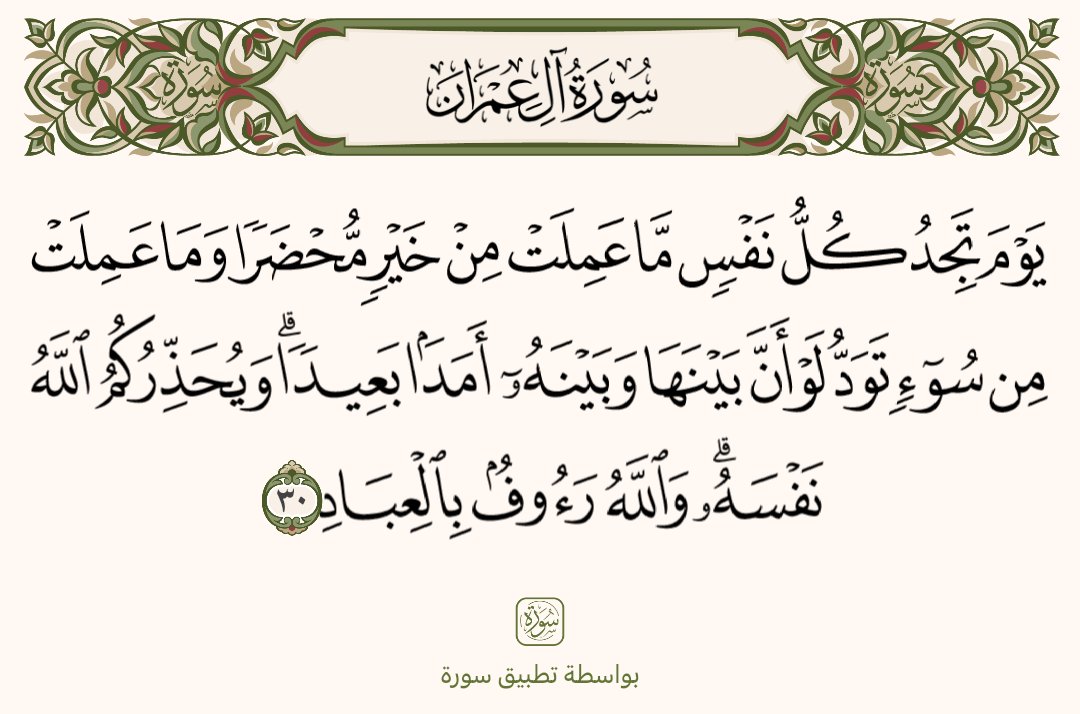 سُورَةُ آلِ عِمْرَانَ
سُورَة
سُورَة
يَوۡمَ تَجِدُ كُلُّ نَفۡسٖ مَّا عَمِلَتۡ مِنۡ خَيۡرٖ مُّحۡضَرٗا وَمَا عَمِلَتۡ
مِن سُوٓءٖ تَوَدُّ لَوۡ أَنَّ بَيۡنَهَا وَبَيۡنَهُۥٓ أَمَدَۢا بَعِيدٗاۗ وَيُحَذِّرُكُمُ ٱللَّهُ
نَفۡسَهُۥۗ وَٱللَّهُ رَءُوفُۢ بِٱلۡعِبَادِ ٣٠
سُورَة
بواسطة تطبيق سورة